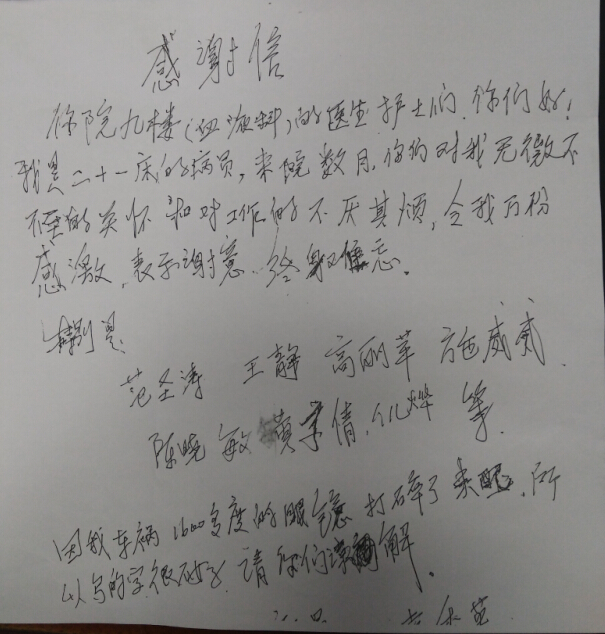 感谢信
你院九楼(血液科)的医生护士们,你们好!
我是二十一床的病员,来院数月,你们对我无微不
不至的关怀和对工作的不厌其烦,令我万份
感激,表示谢意,终身难忘。
特别是
范圣涛 王静 高丽苹 施威威
陈晓敏 倩,仇烨 等
因我车祸1600多度的眼镜打碎了未配,所
以写的字很不好,请你们谅解。